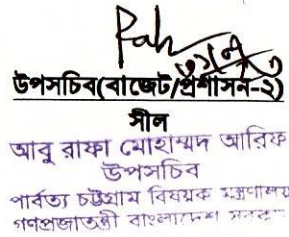 উপসচিব(বাজেট/প্রশাসন-২)
সীল
আবু রাফা মোহাম্মদ আরিফ
উপসচিব
পার্বত্য চট্টগ্রাম বিষয়ক মন্ত্রণালয়
গণপ্রজাতন্ত্রী বাংলাদেশ সরকার